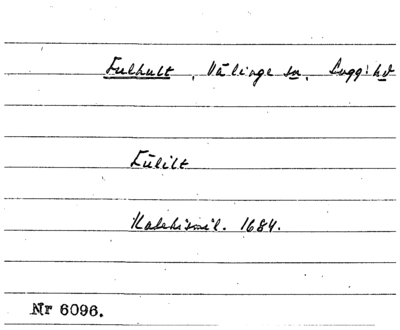 Fulhult, Välinge sn, Lugg: hd
Fülilt
Katekismil. 1684.
Nr 6096.